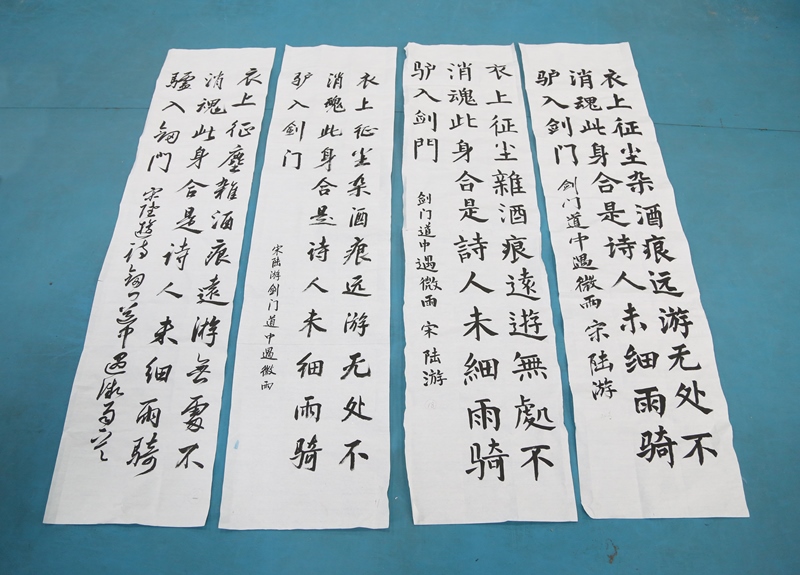 衣上征尘杂酒痕远游无处不
消魂此身合是诗人未细雨骑
驴入剑门
剑门道中遇微雨 宋陆游
衣上征尘雜酒痕遠遊無處不
消魂此身合是詩人未細雨骑
驴入剑門
剑门道中遇微雨 宋 陆游
衣上征尘杂酒痕远游无处不
消魂此身合是诗人未细雨骑
驴入剑门
宋陆游剑门道中遇微雨
衣上征塵雜酒痕遠游無處不
消魂此身合是诗人未细雨骑
驢入劍門
宋陸游诗劍门道中遇微雨